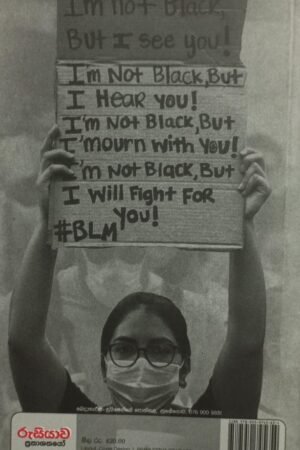 I'm not Black,
But I see you!
I'm Not Black, But
I Hear you!
I'm Not Black, But
I'mourn with You!
I'm Not Black, But
I will Fight For
You!
#BLM
රුසියාව